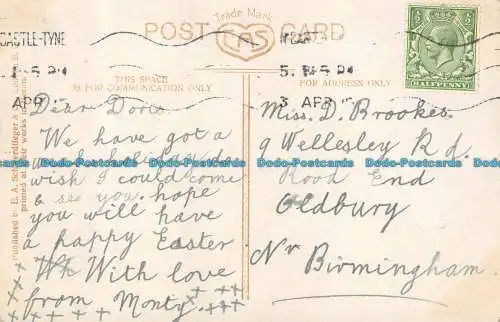 Trade Mark
POST CARD
EAS
CASTLE-TYNE
APR
5.
3 APR
HALFPENNY
THIS SPACE
IS FOR COMMUNICATION ONLY
FOR ADDRESS ONLY
Published by E. A.
printed at their works in
Dear Doris
We have got a
wish I could come
& see you. hope
you will have
a happy Easter
Wh With love
from Monty.
x x x x x x x x
Miss. D. Brookes
9 Wellesley Rd.
Rood End
Oldbury
Nr Birmingham.
Dodo-Postcards.Ltd Dodo-Postcards.Ltd Dodo-Postcards.Ltd